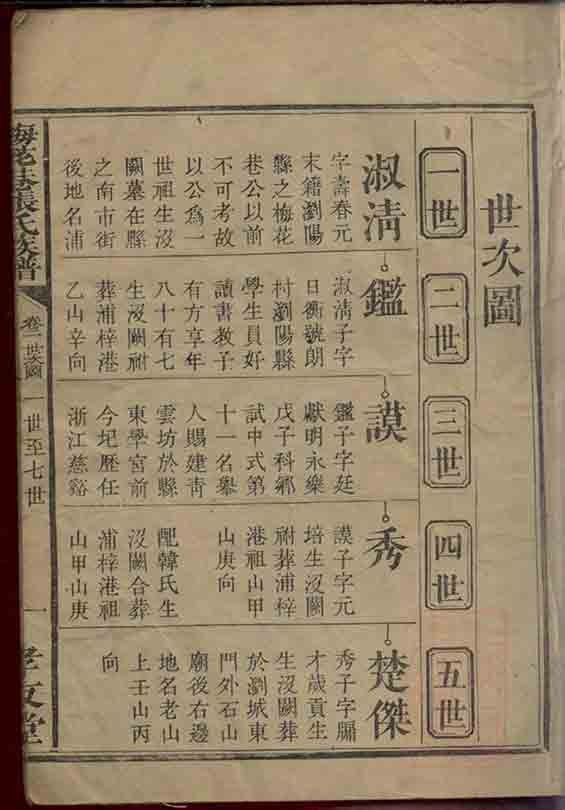 世次圖
一世
二世
三世
四世
五世
淑清
字壽春元
末籍瀏陽
縣之梅花
巷公以前
不可考故
以公爲一
世祖生沒
闕墓在縣
之南市街
後地名浦
鑑
淑清子字
日衡號朗
村瀏陽縣
學生員好
讀書教子
有方享年
八十有七
生沒闕祔
葬浦梓港
乙山辛向
謨
鑑子字廷
獻明永樂
戊子科鄉
試中式第
十一名舉
人賜建靑
雲坊於縣
東學宮前
今圮歷任
浙江慈谿
秀
謨子字元
培生沒闕
祔葬浦梓
港祖山甲
山庚向
配韓氏生
沒闕合葬
浦梓港祖
山甲山庚
楚傑
秀子字騸
才歲貢生
生沒闕葬
於瀏城東
門外石山
廟後右邊
地名老山
上壬山丙
向
梅花巷張氏族譜
卷一世次圖
一世至七世
一
孝友堂